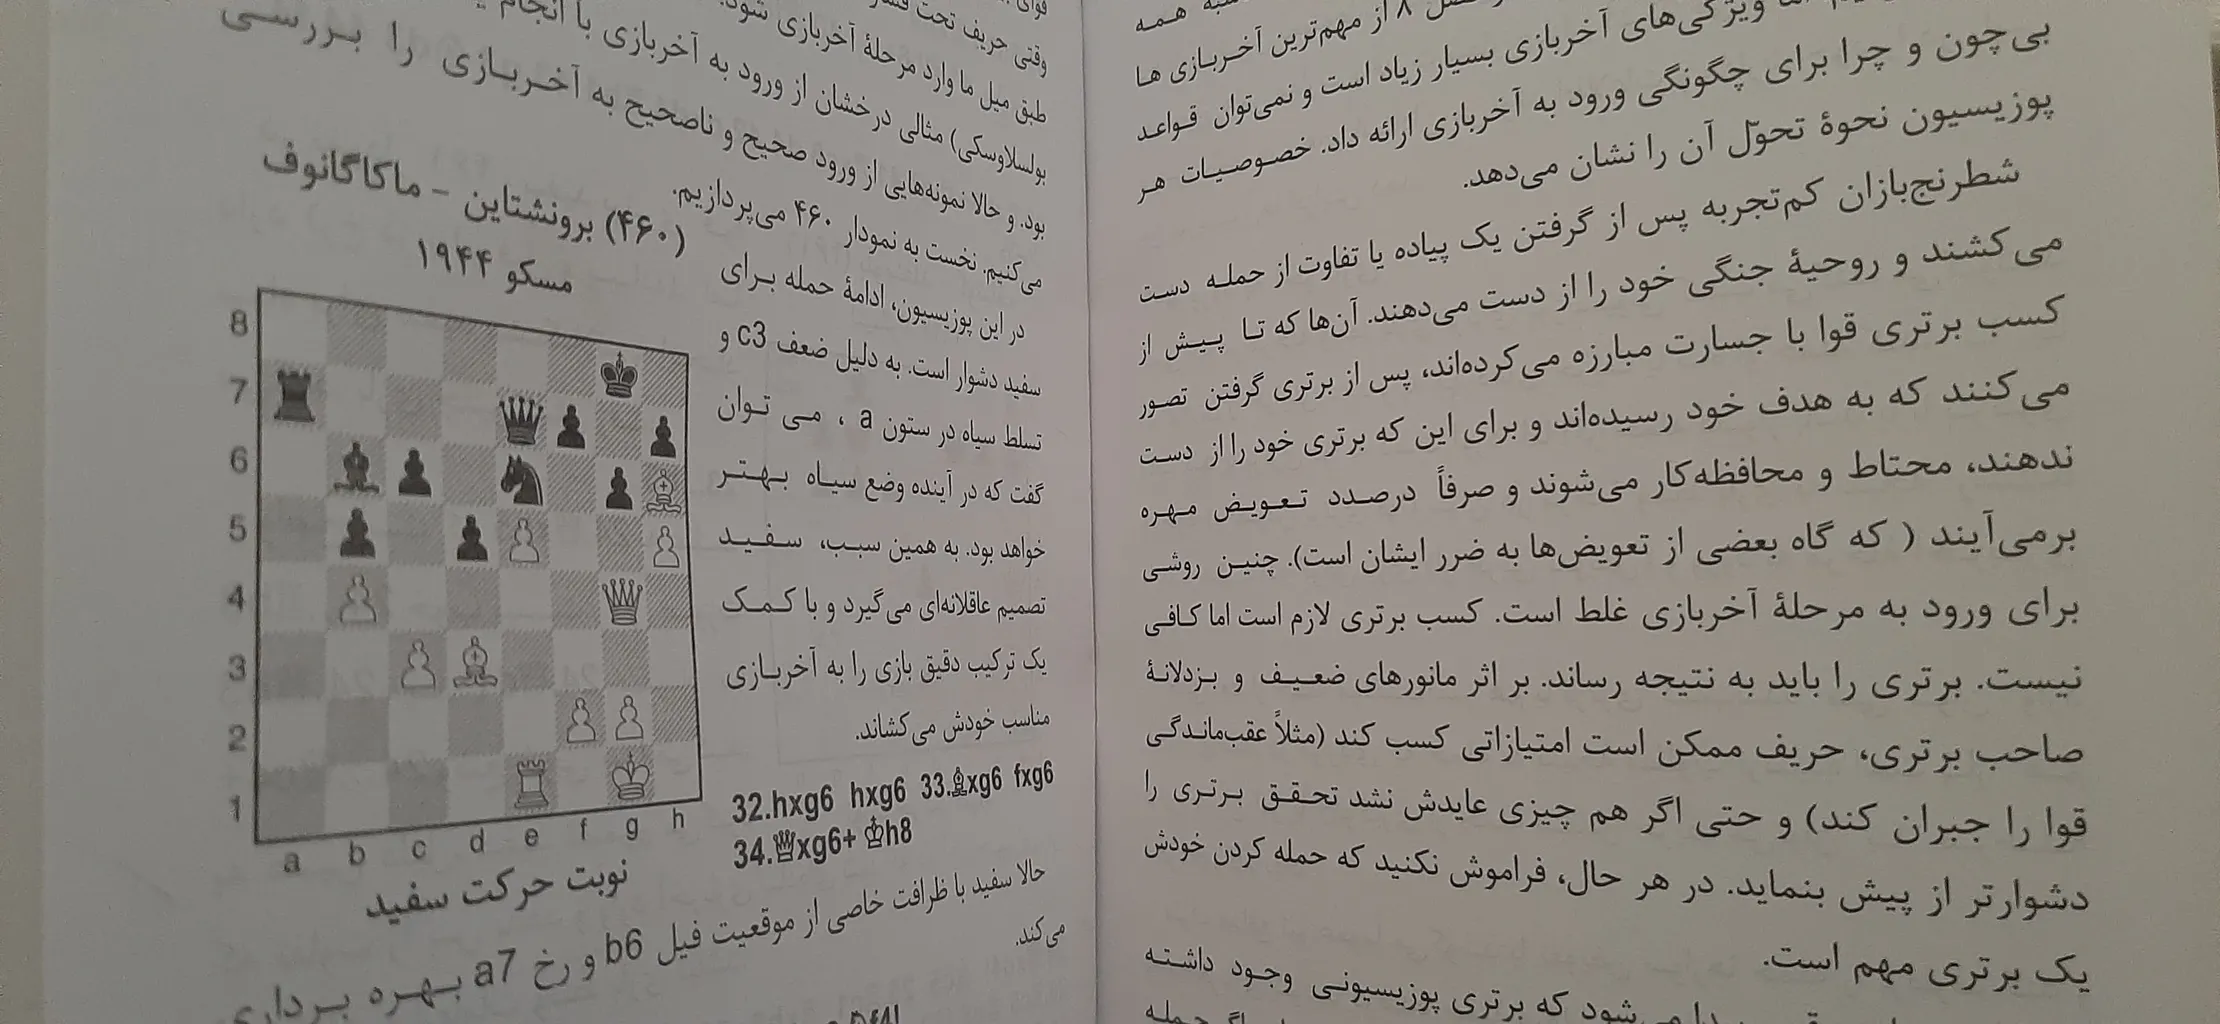 از مهم‌ترین آخربازی ها
ویژگی‌های آخربازی بسیار زیاد است و نمی‌توان قواعد
بی‌چون و چرا برای چگونگی ورود به آخربازی ارائه داد. خصوصیات هر
پوزیسیون نحوهٔ تحوّل آن را نشان می‌دهد.
شطرنج‌بازان کم‌تجربه پس از گرفتن یک پیاده یا تفاوت از حمله دست
می‌کشند و روحیهٔ جنگی خود را از دست می‌دهند. آن‌ها که تا پیش از
کسب برتری قوا با جسارت مبارزه می‌کرده‌اند، پس از برتری گرفتن تصور
می‌کنند که به هدف خود رسیده‌اند و برای این که برتری خود را از دست
ندهند، محتاط و محافظه‌کار می‌شوند و صرفاً درصدد تعویض مهره
برمی‌آیند ( که گاه بعضی از تعویض‌ها به ضرر ایشان است). چنین روشی
برای ورود به مرحلهٔ آخربازی غلط است. کسب برتری لازم است اما کافی
نیست. برتری را باید به نتیجه رساند. بر اثر مانورهای ضعیف و بزدلانهٔ
صاحب برتری، حریف ممکن است امتیازاتی کسب کند (مثلاً عقب‌ماندگی
قوا را جبران کند) و حتی اگر هم چیزی عایدش نشد تحقق برتری را
دشوارتر از پیش بنماید. در هر حال، فراموش نکنید که حمله کردن خودش
یک برتری مهم است.
شود که برتری پوزیسیونی وجود داشته
وقتی حریف تحت
طبق میل ما وارد مرحلهٔ آخربازی شود.
بولسلاوسکی) مثالی درخشان از ورود به آخربازی با انجام
بود. و حالا نمونه‌هایی از ورود صحیح و ناصحیح به آخربازی را بررسی
می‌کنیم. نخست به نمودار ۴۶۰ می‌پردازیم.
(۴۶۰) برونشتاین - ماکاگانوف
مسکو ۱۹۴۴
8
7
6
5
4
3
2
1
a b c d e f g h
نوبت حرکت سفید
در این پوزیسیون، ادامهٔ حمله برای
سفید دشوار است. به دلیل ضعف c3 و
تسلط سیاه در ستون a ، می توان
گفت که در آینده وضع سیاه بهتر
خواهد بود. به همین سبب، سفید
تصمیم عاقلانه‌ای می‌گیرد و با کمک
یک ترکیب دقیق بازی را به آخربازی
مناسب خودش می‌کشاند.
32.hxg6 hxg6 33.♗xg6 fxg6
34.♕xg6+ ♔h8
حالا سفید با ظرافت خاصی از موقعیت فیل b6 و رخ a7 بهره برداری
می‌کند.